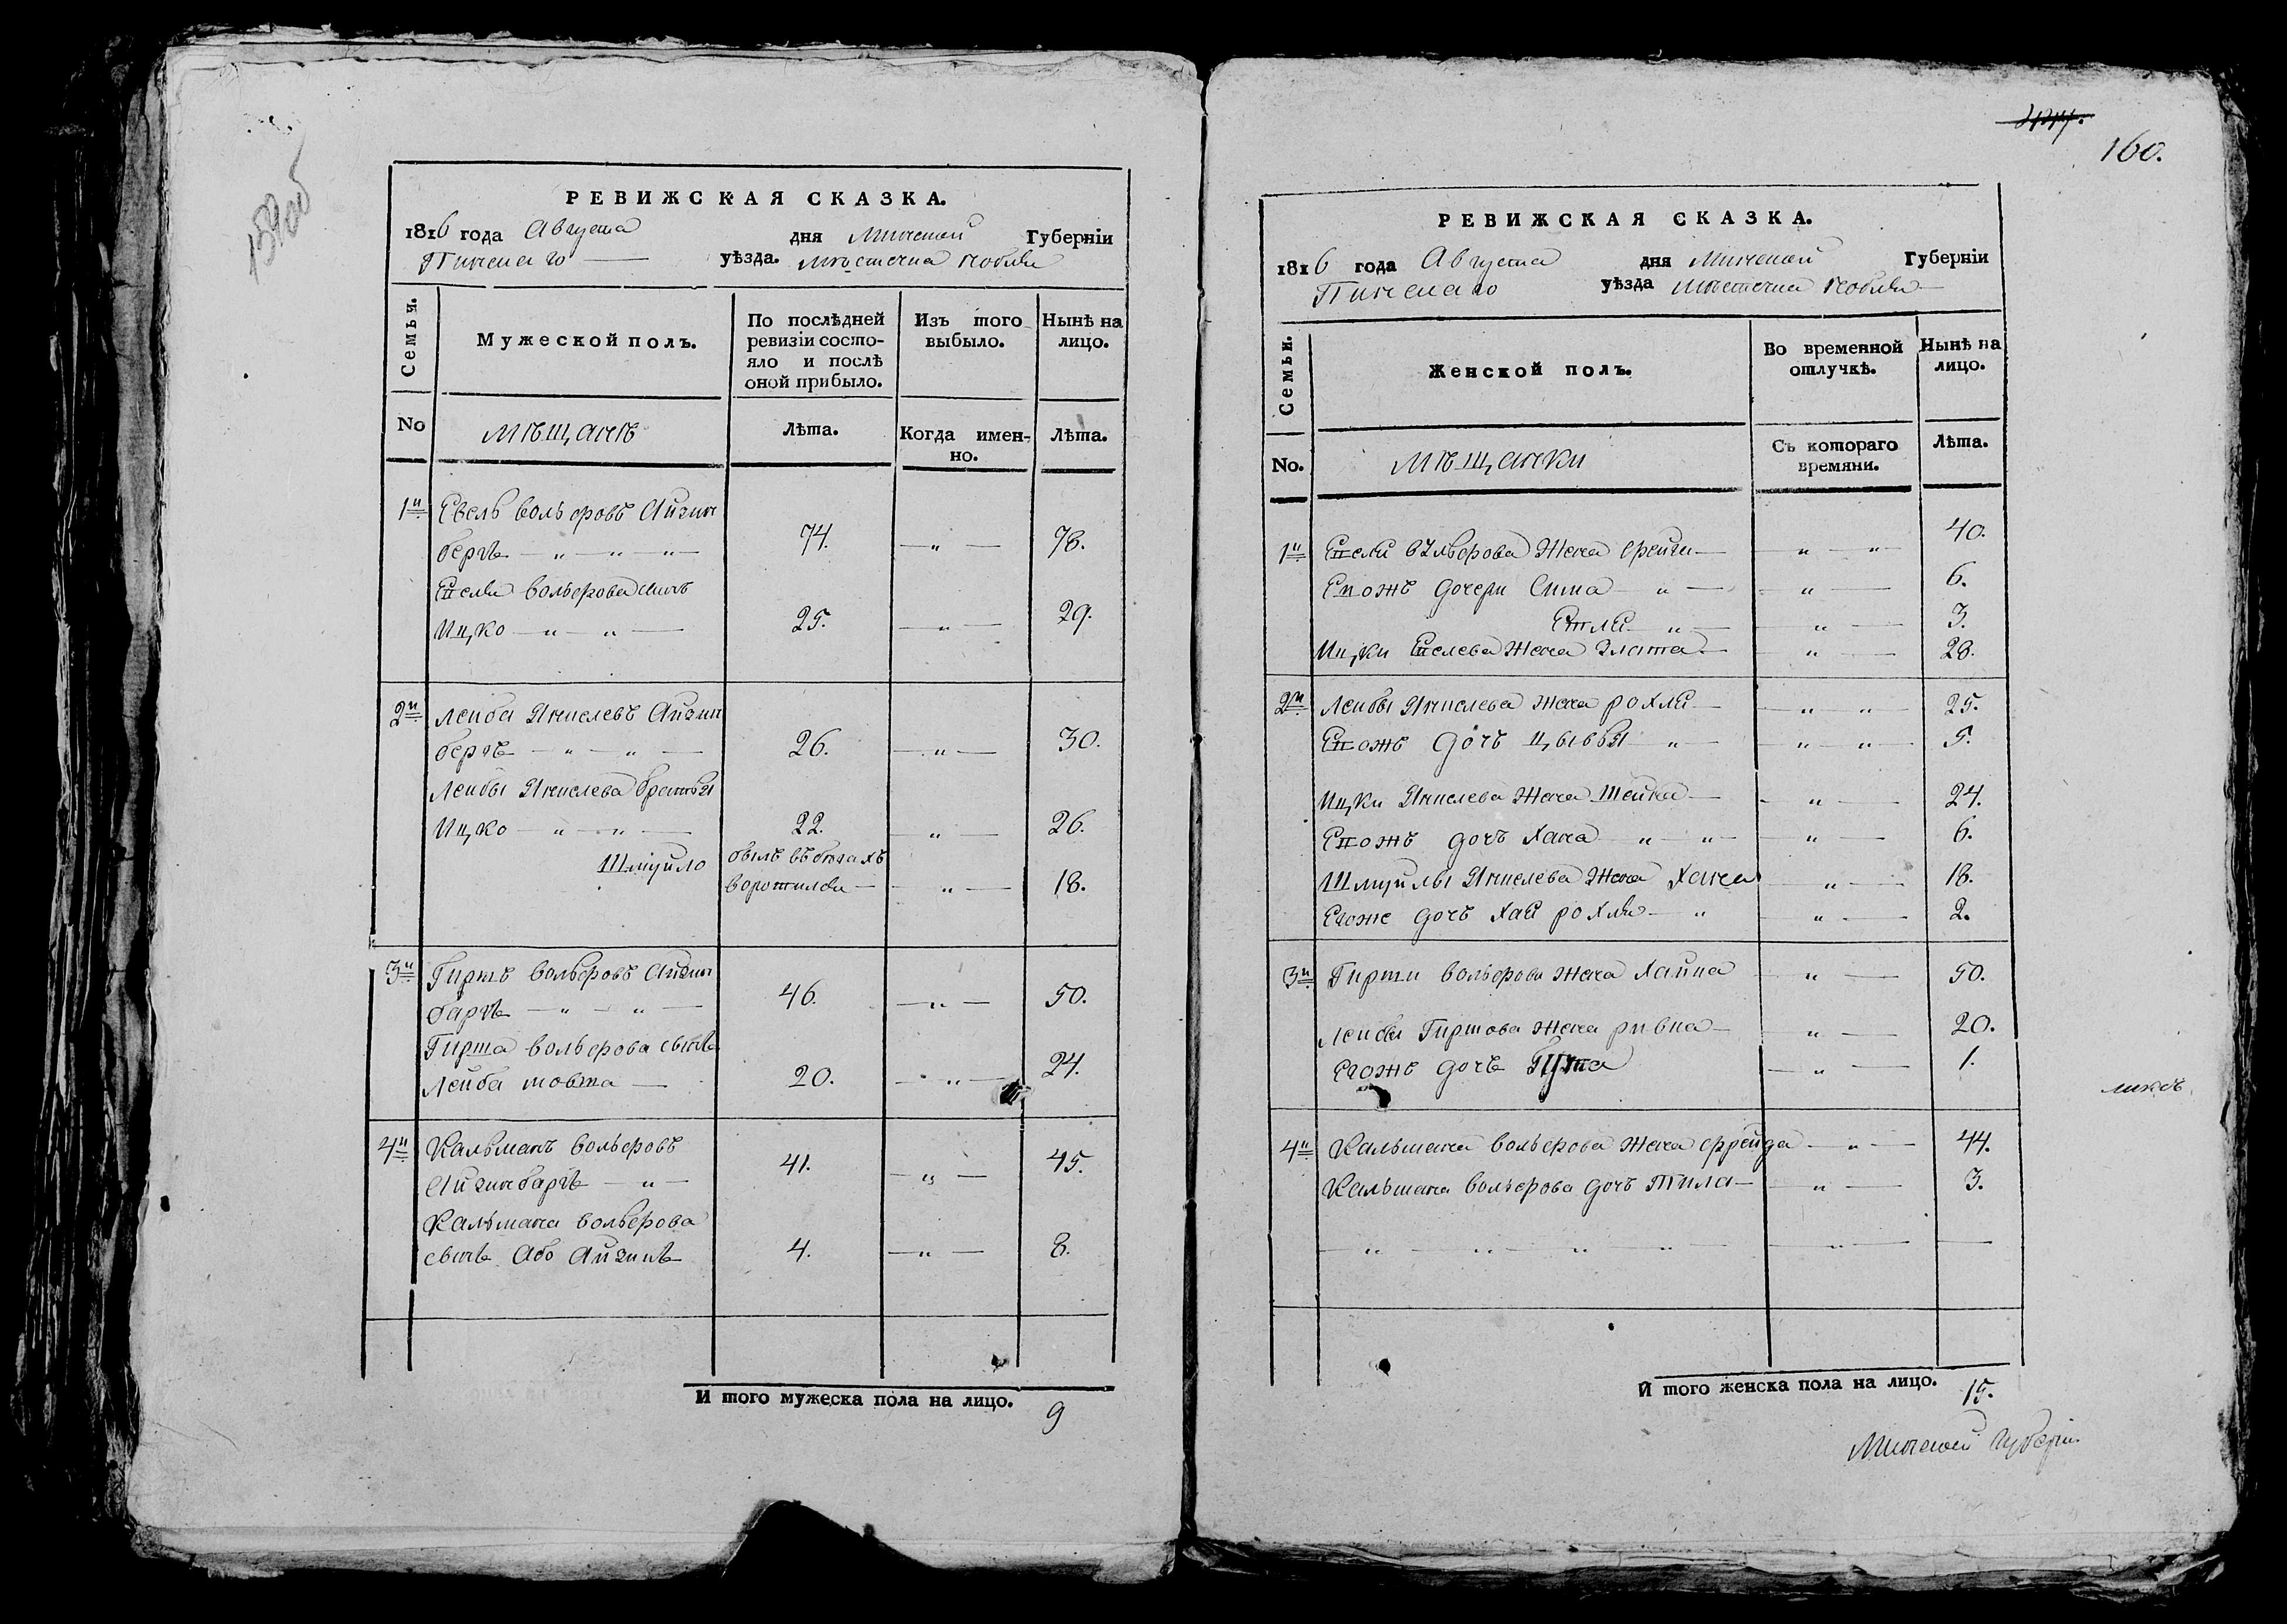 159 об
РЕВИЖСКАЯ СКАЗКА.
1816 года Августа дня Минской Губерніи
Пинскаго уѣзда. мѣстечка
Семьи.
Мужеской полъ.
По послѣдней ревизіи состо-
яло и послѣ
оной прибыло.
Изъ того выбыло.
Нынѣ на лицо.
No
мѣщанѣ
Лѣта.
Когда имен-
но.
Лѣта.
1й Евель Вольфовъ Айзин
бергъ — „ — „ — „ 74. — „ — 78.
Вольфова сынъ
Ицко — „ — „ — 25. — „ — 29.
2й Лейба Янкелевъ Айзин
бергъ — „ — „ — 26. — „ — 30.
Лейбы Янкелева братья
Ицко — „ — „ — 22. „ — 26.
Шмуйло былъ въ бегахъ
воротился — — „ — 18.
3й Гиршъ Вольфовъ Айзин
баргъ — „ — „ — 46. — „ — 50.
Гирша Вольфова сынъ
Лейба Мовша — 20. — „ — 24.
4й Кальманъ Вольфовъ
Айзинбаргъ — „ — 41. — „ — 45.
Кальмана Вольфова
сынъ Або Айзикъ 4. — „ — 8.
И того мужеска пола на лицо. 9
160.
РЕВИЖСКАЯ СКАЗКА.
1816 года Августа дня Минской Губерніи
Пинскаго уѣзда мѣстечка
Семьи.
Женской полъ.
Во временной
отлучкѣ.
Нынѣ на
лицо.
No.
мѣщанки
Съ котораго
времяни.
Лѣта.
1й Вольфова жена Фрейда — „ — „ 40.
Егожъ дочери Сима — „ — — „ — 6.
Етля — „ — — „ — 3.
Ицки Евелева жена Злата — — „ — 28.
2й Лейбы Янкелева жена Рохля — — „ „ 25.
Егожъ дочь Цывья „ — — „ — „ — 5.
Ицки Янкелева жена Шейна — — „ — 24.
Егожъ дочъ Хана — „ — „ — — „ — 6.
Шмуйлы Янкелева жена Хана — „ — 18.
Егоже дочъ Хая Рохля — „ — „ — 2.
3й Гирши Вольфова жена Хайка — „ — 50.
Лейбы Гиршова жена Ривка — — „ — 20.
Егожъ дочъ — „ — 1.
4й Кальмана Вольфова жена Фрейда — „ — 44.
Кальмана Вольфова дочъ Тила — — „ — 3.
— „ — „ — „ — „ — „ — —
И того женска пола на лицо. 15.
Минской Губерніи